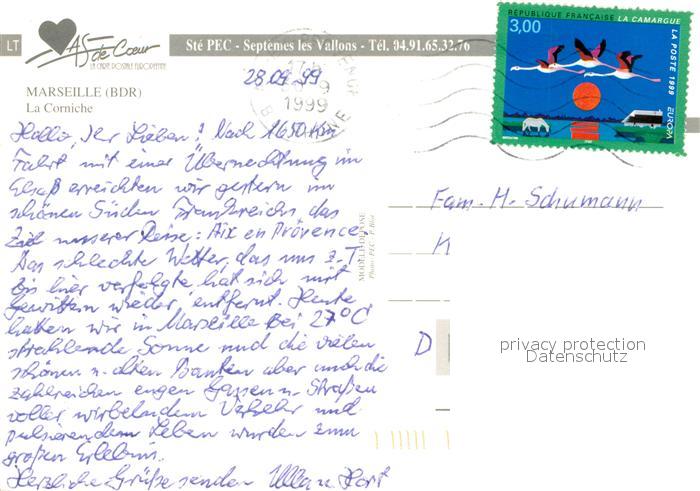 LT
AS de Cœur
LA CARTE POSTALE EUROPEENNE
Sté PEC - Septèmes les Vallons - Tél. 04.91.65.32.76
MARSEILLE (BDR)
La Corniche
28.09.99
1999
RÉPUBLIQUE FRANÇAISE LA CAMARGUE
3,00
LA POSTE 1999
EUROPA
Hallo, Ihr Lieben! Nach 1650 km
Fahrt mit einer Übernachtung im
Elsaß erreichten wir gestern im
schönen Süden Frankreichs, das
Ziel unserer Reise: Aix en Provence.
Das schlechte Wetter, das uns z.T.
bis hier verfolgte hat sich mit
Gewittern wieder entfernt. Heute
hatten wir in Marseille bei 27°C
strahlende Sonne und die vielen
schönen u. alten Bauten aber auch die
zahlreichen engen Gassen u. Straßen
voller wirbelndem Verkehr und
pulsierendem Leben wurden zum
großen Erlebnis.
Herzliche Grüße senden Ulla u. Horst
MODELE DEPOSE
Photo: PEC - P. Blot
Fam. H. Schumann
D
privacy protection
Datenschutz